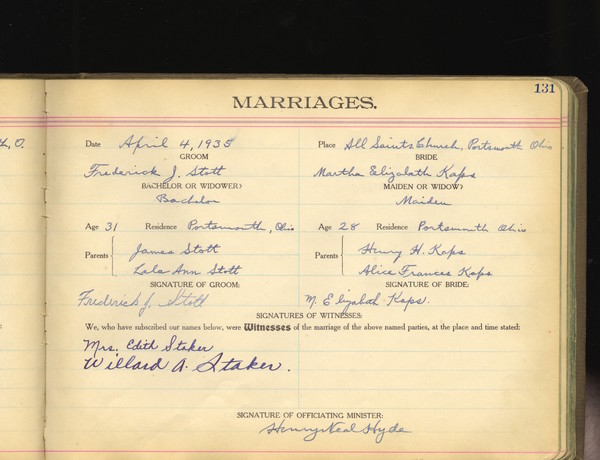 131
MARRIAGES.
Date April 4, 1935 Place All Saints Church, Portsmouth Ohio
GROOM BRIDE
Frederick J. Stott Martha Elizabeth Kaps
BACHELOR OR WIDOWER? MAIDEN OR WIDOW?
Bachelor Maiden
Age 31 Residence Portsmouth, Ohio Age 28 Residence Portsmouth Ohio
Parents James Stott Parents Henry H. Kaps
Lala Ann Stott Alice Frances Kaps
SIGNATURE OF GROOM: SIGNATURE OF BRIDE:
Frederick J. Stott M. Elizabeth Kaps.
SIGNATURES OF WITNESSES:
We, who have subscribed our names below, were Witnesses of the marriage of the above named parties, at the place and time stated:
Mrs. Edith Staker
Willard A. Staker.
SIGNATURE OF OFFICIATING MINISTER:
Henry Neal Hyde